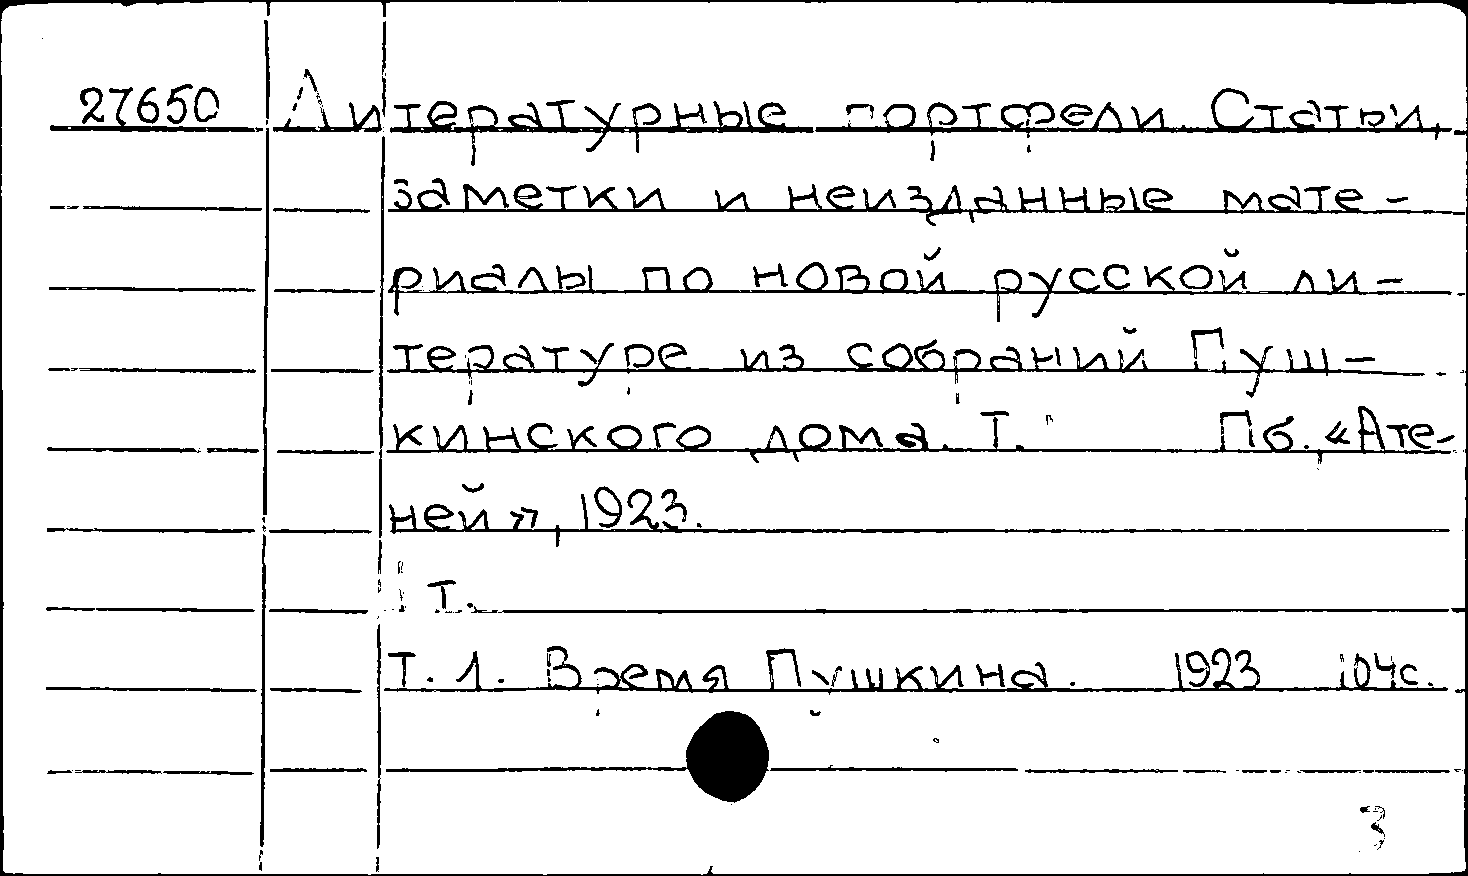 27650 Литературные портфели. Статьи,
заметки и неизданные мате-
риалы по новой русской ли-
тературе из собраний Пуш-
кинского дома. Т. Пб., «Ате-
ней», 1923.
т.
Т. 1. Время Пушкина. 1923 104с.
3